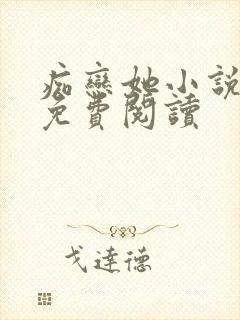 痴戀她小說
免費閱讀
戈達德